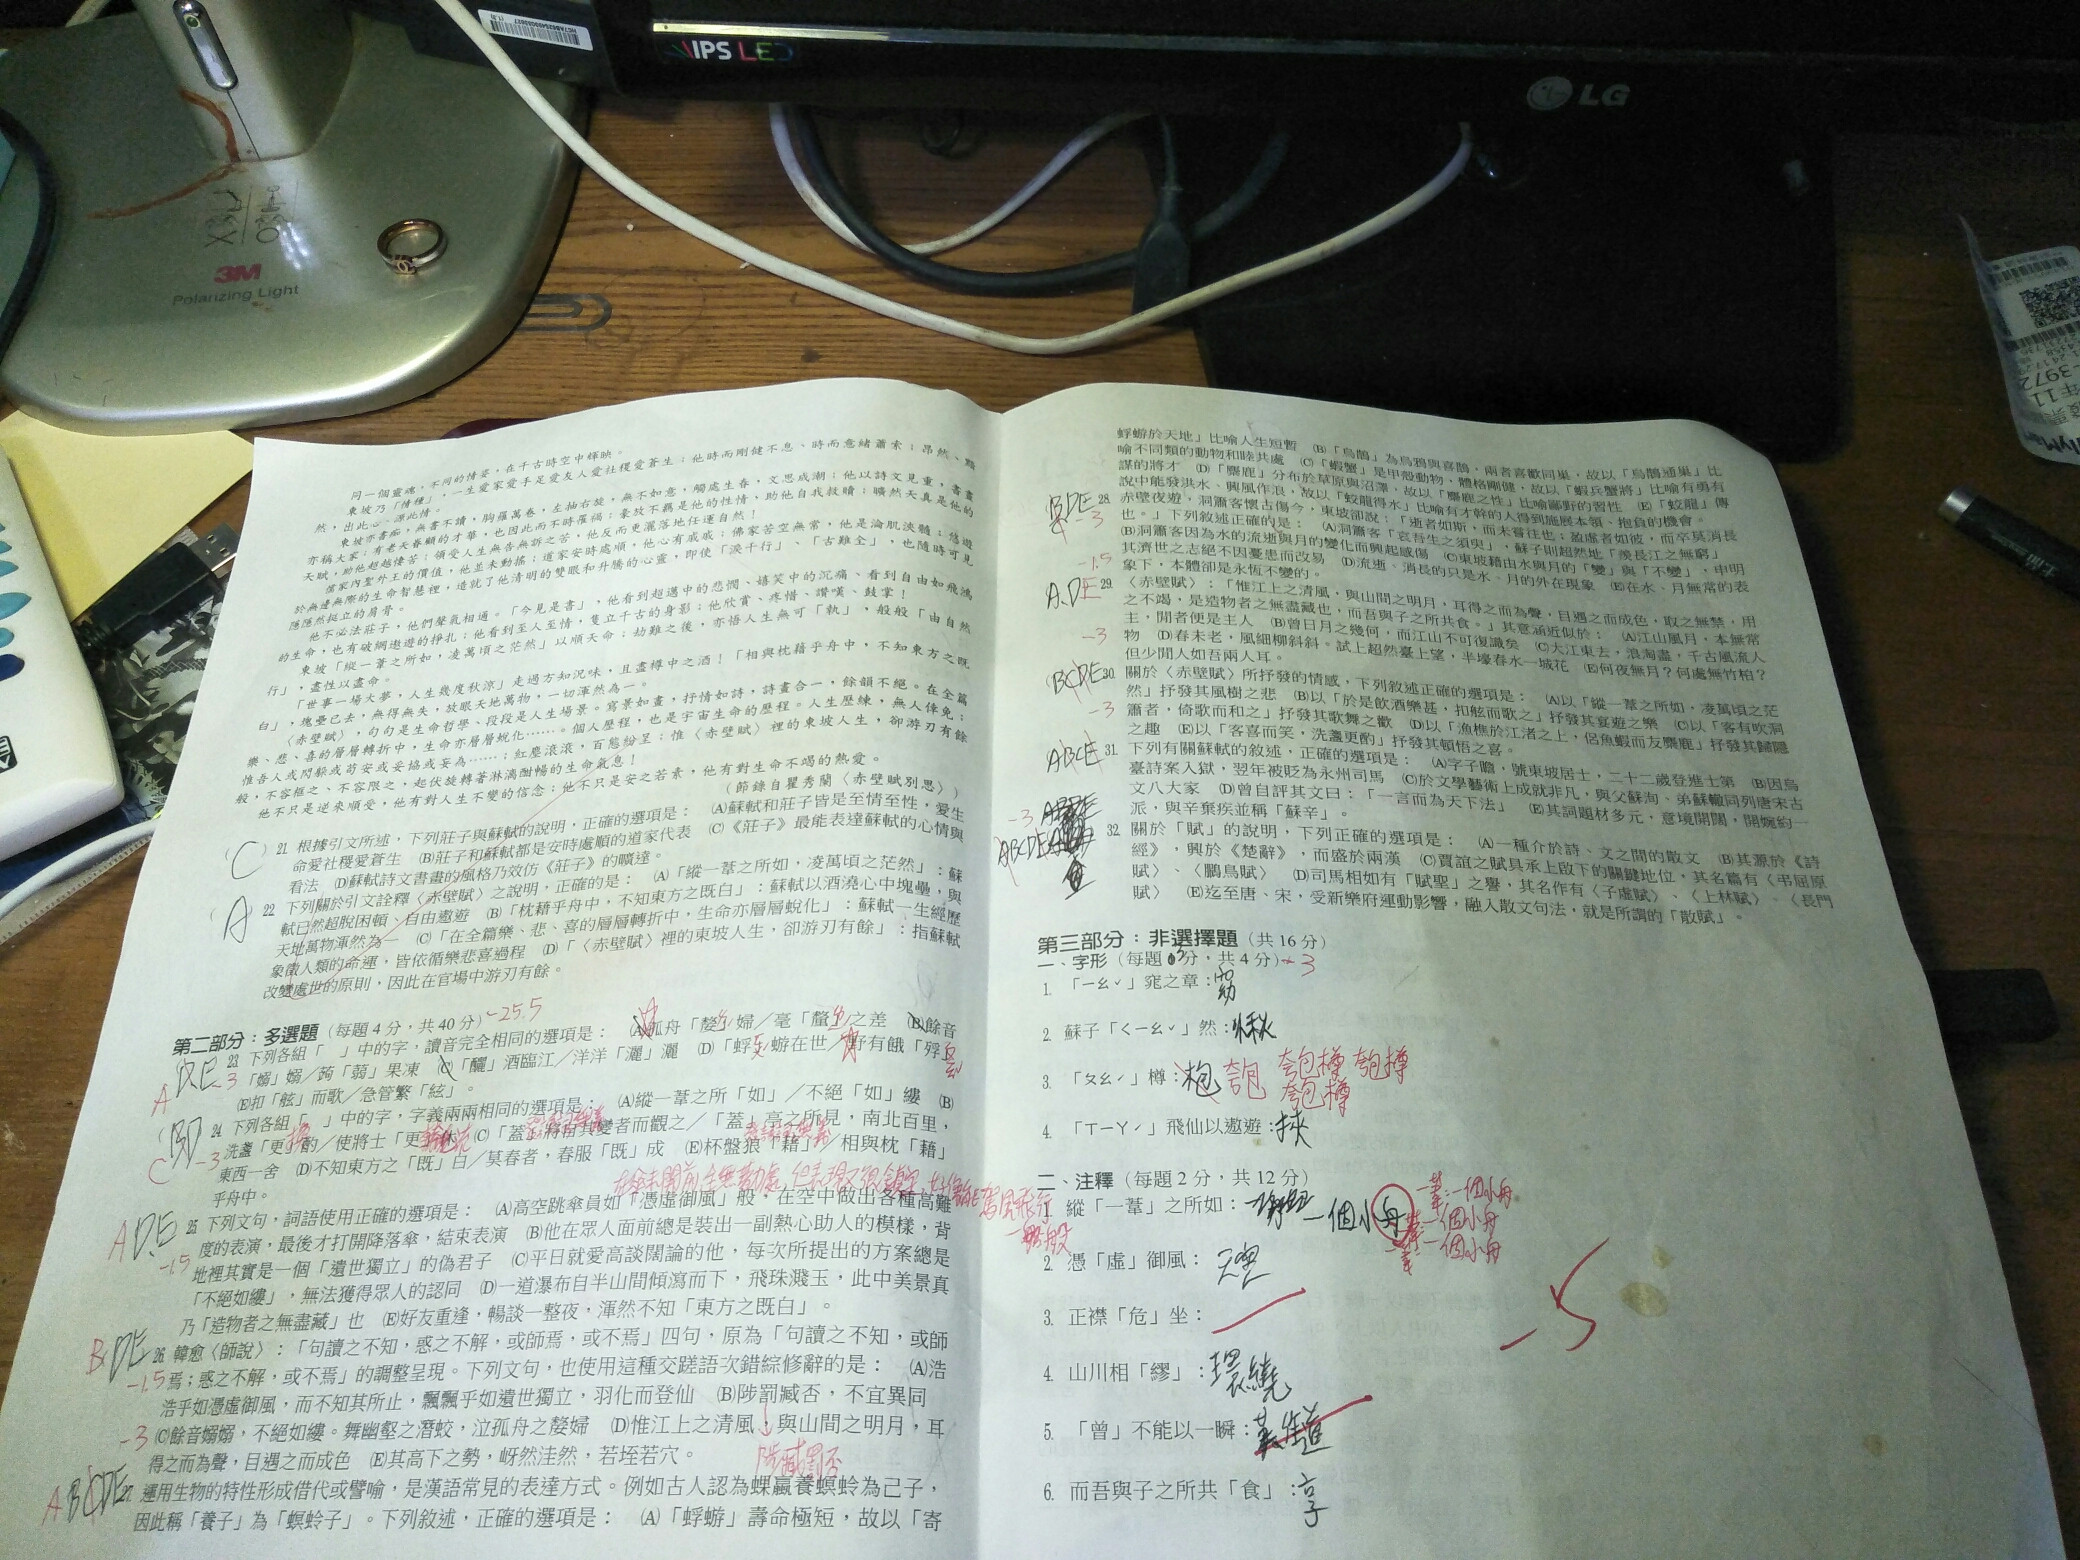 IPS LED
LG
3M
Polarizing Light
同一個靈魂，不同的情姿，在千古時空中輝映。
東坡乃「情種」，一生愛家愛手足愛友人愛社稷愛蒼生；他時而剛健不息、時而意緒蕭索；昂然、黯
然，出此心，源此情。
東坡亦書痴，無書不讀，胸羅萬卷，左抽右旋，無不如意，觸處生春，文思成潮；他以詩文見重，書畫
亦稱大家；有老天眷顧的才華，也因此而不時罹禍；豪放不羈是他的性情，助他自我救贖；曠然天真是他的
天賦，助他超越悽苦；領受人生無告無訴之苦，他反而更灑落地任運自然！
儒家內聖外王的價值，他並未動搖；道家安時處順，他心有戚戚；佛家苦空無常，他是淪肌浹髓；悠遊
於無邊無際的生命智慧裡，造就了他清明的雙眼和升騰的心靈，即使「淚千行」、「古難全」，也隨時可見
隱隱然挺立的肩脊。
他不必法莊子，他們聲氣相通。「今見是書」，他看到超邁中的悲憫、嬉笑中的沉痛、看到自由如飛鴻
的生命，也有破網遨遊的掙扎；他看到至人至情，隻立千古的身影；他欣賞、疼惜、讚嘆、鼓掌！
東坡「縱一葦之所如，凌萬頃之茫然」以順天命；劫難之後，亦悟人生無可「執」，般般「由自然
行」，盡性以盡命。
「世事一場大夢，人生幾度秋涼」走過方知況味，且盡樽中之酒！「相與枕藉乎舟中，不知東方之既
白」，塊壘已去，無得無失，放眼天地萬物，一切渾然為一。
〈赤壁賦〉，句句是生命哲學、段段是人生場景。寫景如畫，抒情如詩，詩畫合一，餘韻不絕。在全篇
樂、悲、喜的層層轉折中，生命亦層層蛻化……。個人歷程，也是宇宙生命的歷程。人生歷練，無人倖免；
惟吾人或閃躲或苟安或妥協或妄為……；紅塵滾滾，百態紛呈；惟〈赤壁賦〉裡的東坡人生，卻游刃有餘
般，不容框之、不容限之，起伏旋轉著淋漓酣暢的生命氣息！
他不只是逆來順受，他有對人生不變的信念；他不只是安之若素，他有對生命不竭的熱愛。
（節錄自瞿秀蘭〈赤壁賦別思〉）
（C）21. 根據引文所述，下列莊子與蘇軾的說明，正確的選項是： (A)蘇軾和莊子皆是至情至性，愛生
命愛社稷愛蒼生 (B)莊子和蘇軾都是安時處順的道家代表 (C)《莊子》最能表達蘇軾的心情與
看法 (D)蘇軾詩文書畫的風格乃效仿《莊子》的曠達。
（A）22. 下列關於引文詮釋〈赤壁賦〉之說明，正確的是： (A)「縱一葦之所如，凌萬頃之茫然」：蘇
軾已然超脫困頓、自由遨遊 (B)「枕藉乎舟中，不知東方之既白」：蘇軾以酒澆心中塊壘，與
天地萬物渾然為一 (C)「在全篇樂、悲、喜的層層轉折中，生命亦層層蛻化」：蘇軾一生經歷
象徵人類的命運，皆依循樂悲喜過程 (D)「〈赤壁賦〉裡的東坡人生，卻游刃有餘」：指蘇軾
改變處世的原則，因此在官場中游刃有餘。
第二部分：多選題（每題 4 分，共 40 分） -25.5
23. 下列各組「 」中的字，讀音完全相同的選項是： (A)孤舟「嫠」婦／毫「釐」之差 (B)餘音
-3 「嫋」嫋／蒟「蒻」果凍 (C)「釃」酒臨江／洋洋「灑」灑 (D)「蜉」蝣在世／野有餓「殍」
(E)扣「舷」而歌／急管繁「絃」。
24. 下列各組「 」中的字，字義兩兩相同的選項是： (A)縱一葦之所「如」／不絕「如」縷 (B)
洗盞「更」酌／使將士「更」休 (C)「蓋」將自其變者而觀之／「蓋」亭之所見，南北百里，
-3 東西一舍 (D)不知東方之「既」白／莫春者，春服「既」成 (E)杯盤狼「藉」／相與枕「藉」
乎舟中。
ADE 25. 下列文句，詞語使用正確的選項是： (A)高空跳傘員如「憑虛御風」般，在空中做出各種高難
-1.5 度的表演，最後才打開降落傘，結束表演 (B)他在眾人面前總是裝出一副熱心助人的模樣，背
地裡其實是一個「遺世獨立」的偽君子 (C)平日就愛高談闊論的他，每次所提出的方案總是
「不絕如縷」，無法獲得眾人的認同 (D)一道瀑布自半山間傾瀉而下，飛珠濺玉，此中美景真
乃「造物者之無盡藏」也 (E)好友重逢，暢談一整夜，渾然不知「東方之既白」。
BDE 26. 韓愈〈師說〉：「句讀之不知，惑之不解，或師焉，或不焉」四句，原為「句讀之不知，或師
-1.5 焉；惑之不解，或不焉」的調整呈現。下列文句，也使用這種交蹉語次錯綜修辭的是： (A)浩
浩乎如憑虛御風，而不知其所止，飄飄乎如遺世獨立，羽化而登仙 (B)陟罰臧否，不宜異同
-3 (C)餘音嫋嫋，不絕如縷。舞幽壑之潛蛟，泣孤舟之嫠婦 (D)惟江上之清風，與山間之明月，耳
得之而為聲，目遇之而成色 (E)其高下之勢，岈然洼然，若垤若穴。
陟臧罰否
ABCDE 27. 運用生物的特性形成借代或譬喻，是漢語常見的表達方式。例如古人認為蜾蠃養螟蛉為己子，
因此稱「養子」為「螟蛉子」。下列敘述，正確的選項是： (A)「蜉蝣」壽命極短，故以「寄
蜉蝣於天地」比喻人生短暫 (B)「烏鵲」為烏鴉與喜鵲，兩者喜歡同巢，故以「烏鵲通巢」比
喻不同類的動物和睦共處 (C)「蝦蟹」是甲殼動物，體格剛健，故以「蝦兵蟹將」比喻有勇有
謀的將才 (D)「麋鹿」分布於草原與沼澤，故以「麋鹿之性」比喻鄙野的習性 (E)「蛟龍」傳
說中能發洪水、興風作浪，故以「蛟龍得水」比喻有才幹的人得到施展本領、抱負的機會。
BDE 28. 赤壁夜遊，洞簫客懷古傷今，東坡卻說：「逝者如斯，而未嘗往也；盈虛者如彼，而卒莫消長
-3 也。」下列敘述正確的是： (A)洞簫客「哀吾生之須臾」，蘇子則超然地「羨長江之無窮」
(B)洞簫客因為水的流逝與月的變化而興起感傷 (C)東坡藉由水與月的「變」與「不變」，申明
其濟世之志絕不因憂患而改易 (D)流逝、消長的只是水、月的外在現象 (E)在水、月無常的表
-1.5 象下，本體卻是永恆不變的。
ADE 29. 〈赤壁賦〉：「惟江上之清風，與山間之明月，耳得之而為聲，目遇之而成色，取之無禁，用
之不竭，是造物者之無盡藏也，而吾與子之所共食。」其意涵近似於： (A)江山風月，本無常
主，閒者便是主人 (B)曾日月之幾何，而江山不可復識矣 (C)大江東去，浪淘盡，千古風流人
-3 物 (D)春未老，風細柳斜斜。試上超然臺上望，半壕春水一城花 (E)何夜無月？何處無竹柏？
但少閒人如吾兩人耳。
BCDE 30. 關於〈赤壁賦〉所抒發的情感，下列敘述正確的選項是： (A)以「縱一葦之所如，凌萬頃之茫
然」抒發其風樹之悲 (B)以「於是飲酒樂甚，扣舷而歌之」抒發其宴遊之樂 (C)以「客有吹洞
-3 簫者，倚歌而和之」抒發其歌舞之歡 (D)以「漁樵於江渚之上，侶魚蝦而友麋鹿」抒發其歸隱
之趣 (E)以「客喜而笑，洗盞更酌」抒發其頓悟之喜。
ABCE 31. 下列有關蘇軾的敘述，正確的選項是： (A)字子瞻，號東坡居士，二十二歲登進士第 (B)因烏
臺詩案入獄，翌年被貶為永州司馬 (C)於文學藝術上成就非凡，與父蘇洵、弟蘇轍同列唐宋古
文八大家 (D)曾自評其文曰：「一言而為天下法」 (E)其詞題材多元，意境開闊，開婉約一
-3 派，與辛棄疾並稱「蘇辛」。
ABCDE 32. 關於「賦」的說明，下列正確的選項是： (A)一種介於詩、文之間的散文 (B)其源於《詩
經》，興於《楚辭》，而盛於兩漢 (C)賈誼之賦具承上啟下的關鍵地位，其名篇有〈弔屈原
賦〉、〈鵩鳥賦〉 (D)司馬相如有「賦聖」之譽，其名作有〈子虛賦〉、〈上林賦〉、〈長門
賦〉 (E)迄至唐、宋，受新樂府運動影響，融入散文句法，就是所謂的「散賦」。
第三部分：非選擇題（共 16 分）
一、字形（每題 分，共 4 分）-3
1. 「ㄧㄠˇ」窕之章：窈
2. 蘇子「ㄑㄧㄠˇ」然：愀
3. 「ㄆㄠˊ」樽：枹 匏 匏樽 匏樽
匏樽
4. 「ㄒㄧㄚˊ」飛仙以遨遊：挾
二、注釋（每題 2 分，共 12 分）
1. 縱「一葦」之所如： 一個小舟 一葦:一個小舟
一葦:一個小舟
一葦:一個小舟
2. 憑「虛」御風：
-5
3. 正襟「危」坐：
4. 山川相「繆」：環繞
5. 「曾」不能以一瞬：
6. 而吾與子之所共「食」：享